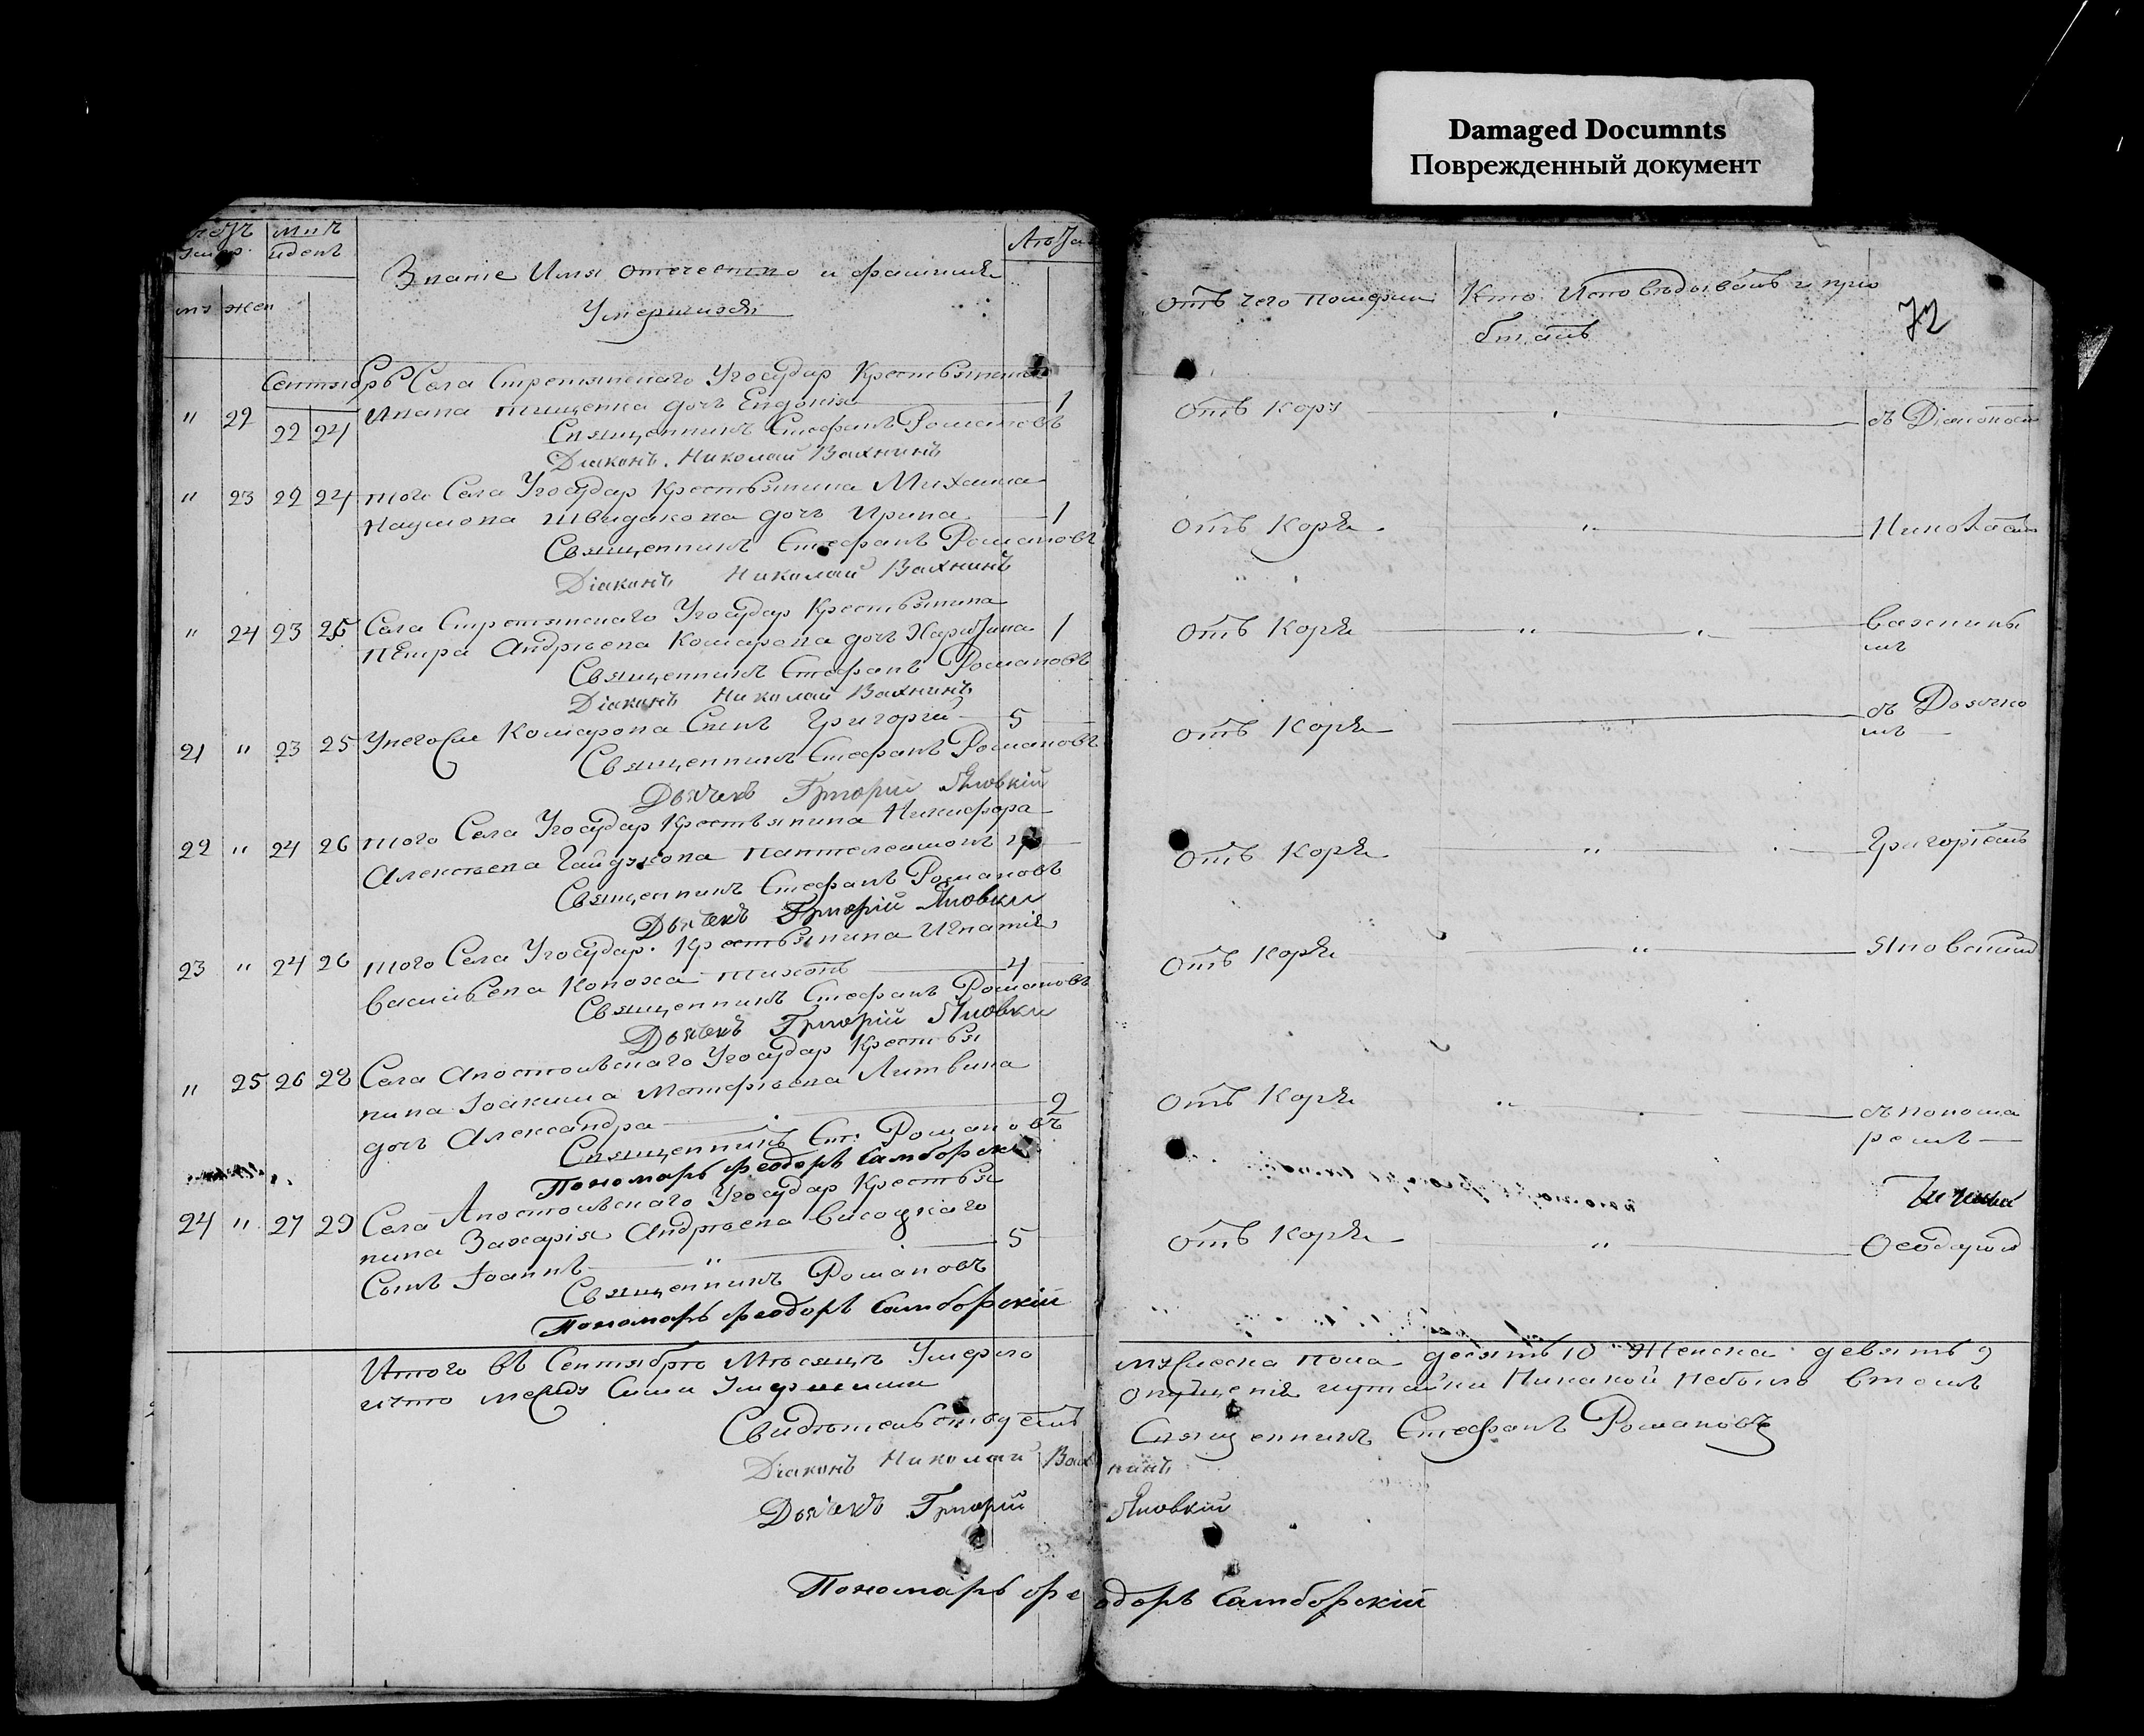 Damaged Documnts
Поврежденный документ
72
Званіе Имя отечество и фамилія
Умершихъ
Лета
муж жен
Отъ чего померли
Кто Исповѣдывалъ и прио
бщалъ
Сентябрь Села Стретенскаго Государ Крестьянина
" 22 22 24 Ивана дочь Евдокія 1
Священникъ Стефанъ Романовъ
Діаконъ Николай Вахнинъ
Отъ Кору
съ Діакономъ
" 23 22 24 того Села Государ Крестьянина Михаила
Наумова Швидакова дочь Ирина 1
Священникъ Стефанъ Романовъ
Діаконъ Николай Вахнинъ
Отъ Коря
Николаемъ
" 24 23 25 Села Стретенскаго Государ Крестьянина
Петра Андреева Комарова дочь Харитина 1
Священникъ Стефанъ Романовъ
Діаконъ Николай Вахнинъ
Отъ Коря
Вахнины
мъ
21 " 23 25 Унегоже Комарова Сынъ Григорій 5
Священникъ Стефанъ Романовъ
Дьячекъ Григорій Яновкій
Отъ Коря
съ Дьячко
мъ
22 " 24 26 того Села Государ Крестьянина Никифора
Алексеева Гайдукова Пантелеимонъ
Священникъ Стефанъ Романовъ
Дьячекъ Григорій Яновки
Отъ Коря
Григоріемъ
23 " 24 26 того Села Государ. Крестьянина Игнатія
Васильева Тихонъ 4
Священникъ Стефанъ Романовъ
Дьячекъ Григорій Яновки
Отъ Коря
Яновскимъ
" 25 26 28 Села Апостольскаго Государ Крестья
нина Іоакима Матфеева Литвина
дочь Александра 2
Священникъ Ст: Романовъ
Пономарь феодоръ Самборскі
Отъ Коря
съ понома
ремъ
24 " 27 29 Села Апостольскаго Государ Крестья
нина Захарія Андреева Висоцкаго
Сынъ Іоаннъ 5
Священникъ Романовъ
Пономарь феодоръ Самборскій
Отъ Коря
Ѳеодором
Итого въ Сентябрѣ Мѣсяцѣ Умерло
мужеска пола десять 10 Женска девять 9
что между Сими Умершими
опущенія Никакой Небыло втомъ
Свидѣтельствуемъ
Священникъ Стефанъ Романовъ
Діаконъ Николай Вахнинъ
Дьячекъ Григорій Яновкій
Пономарь феодоръ Самборскій